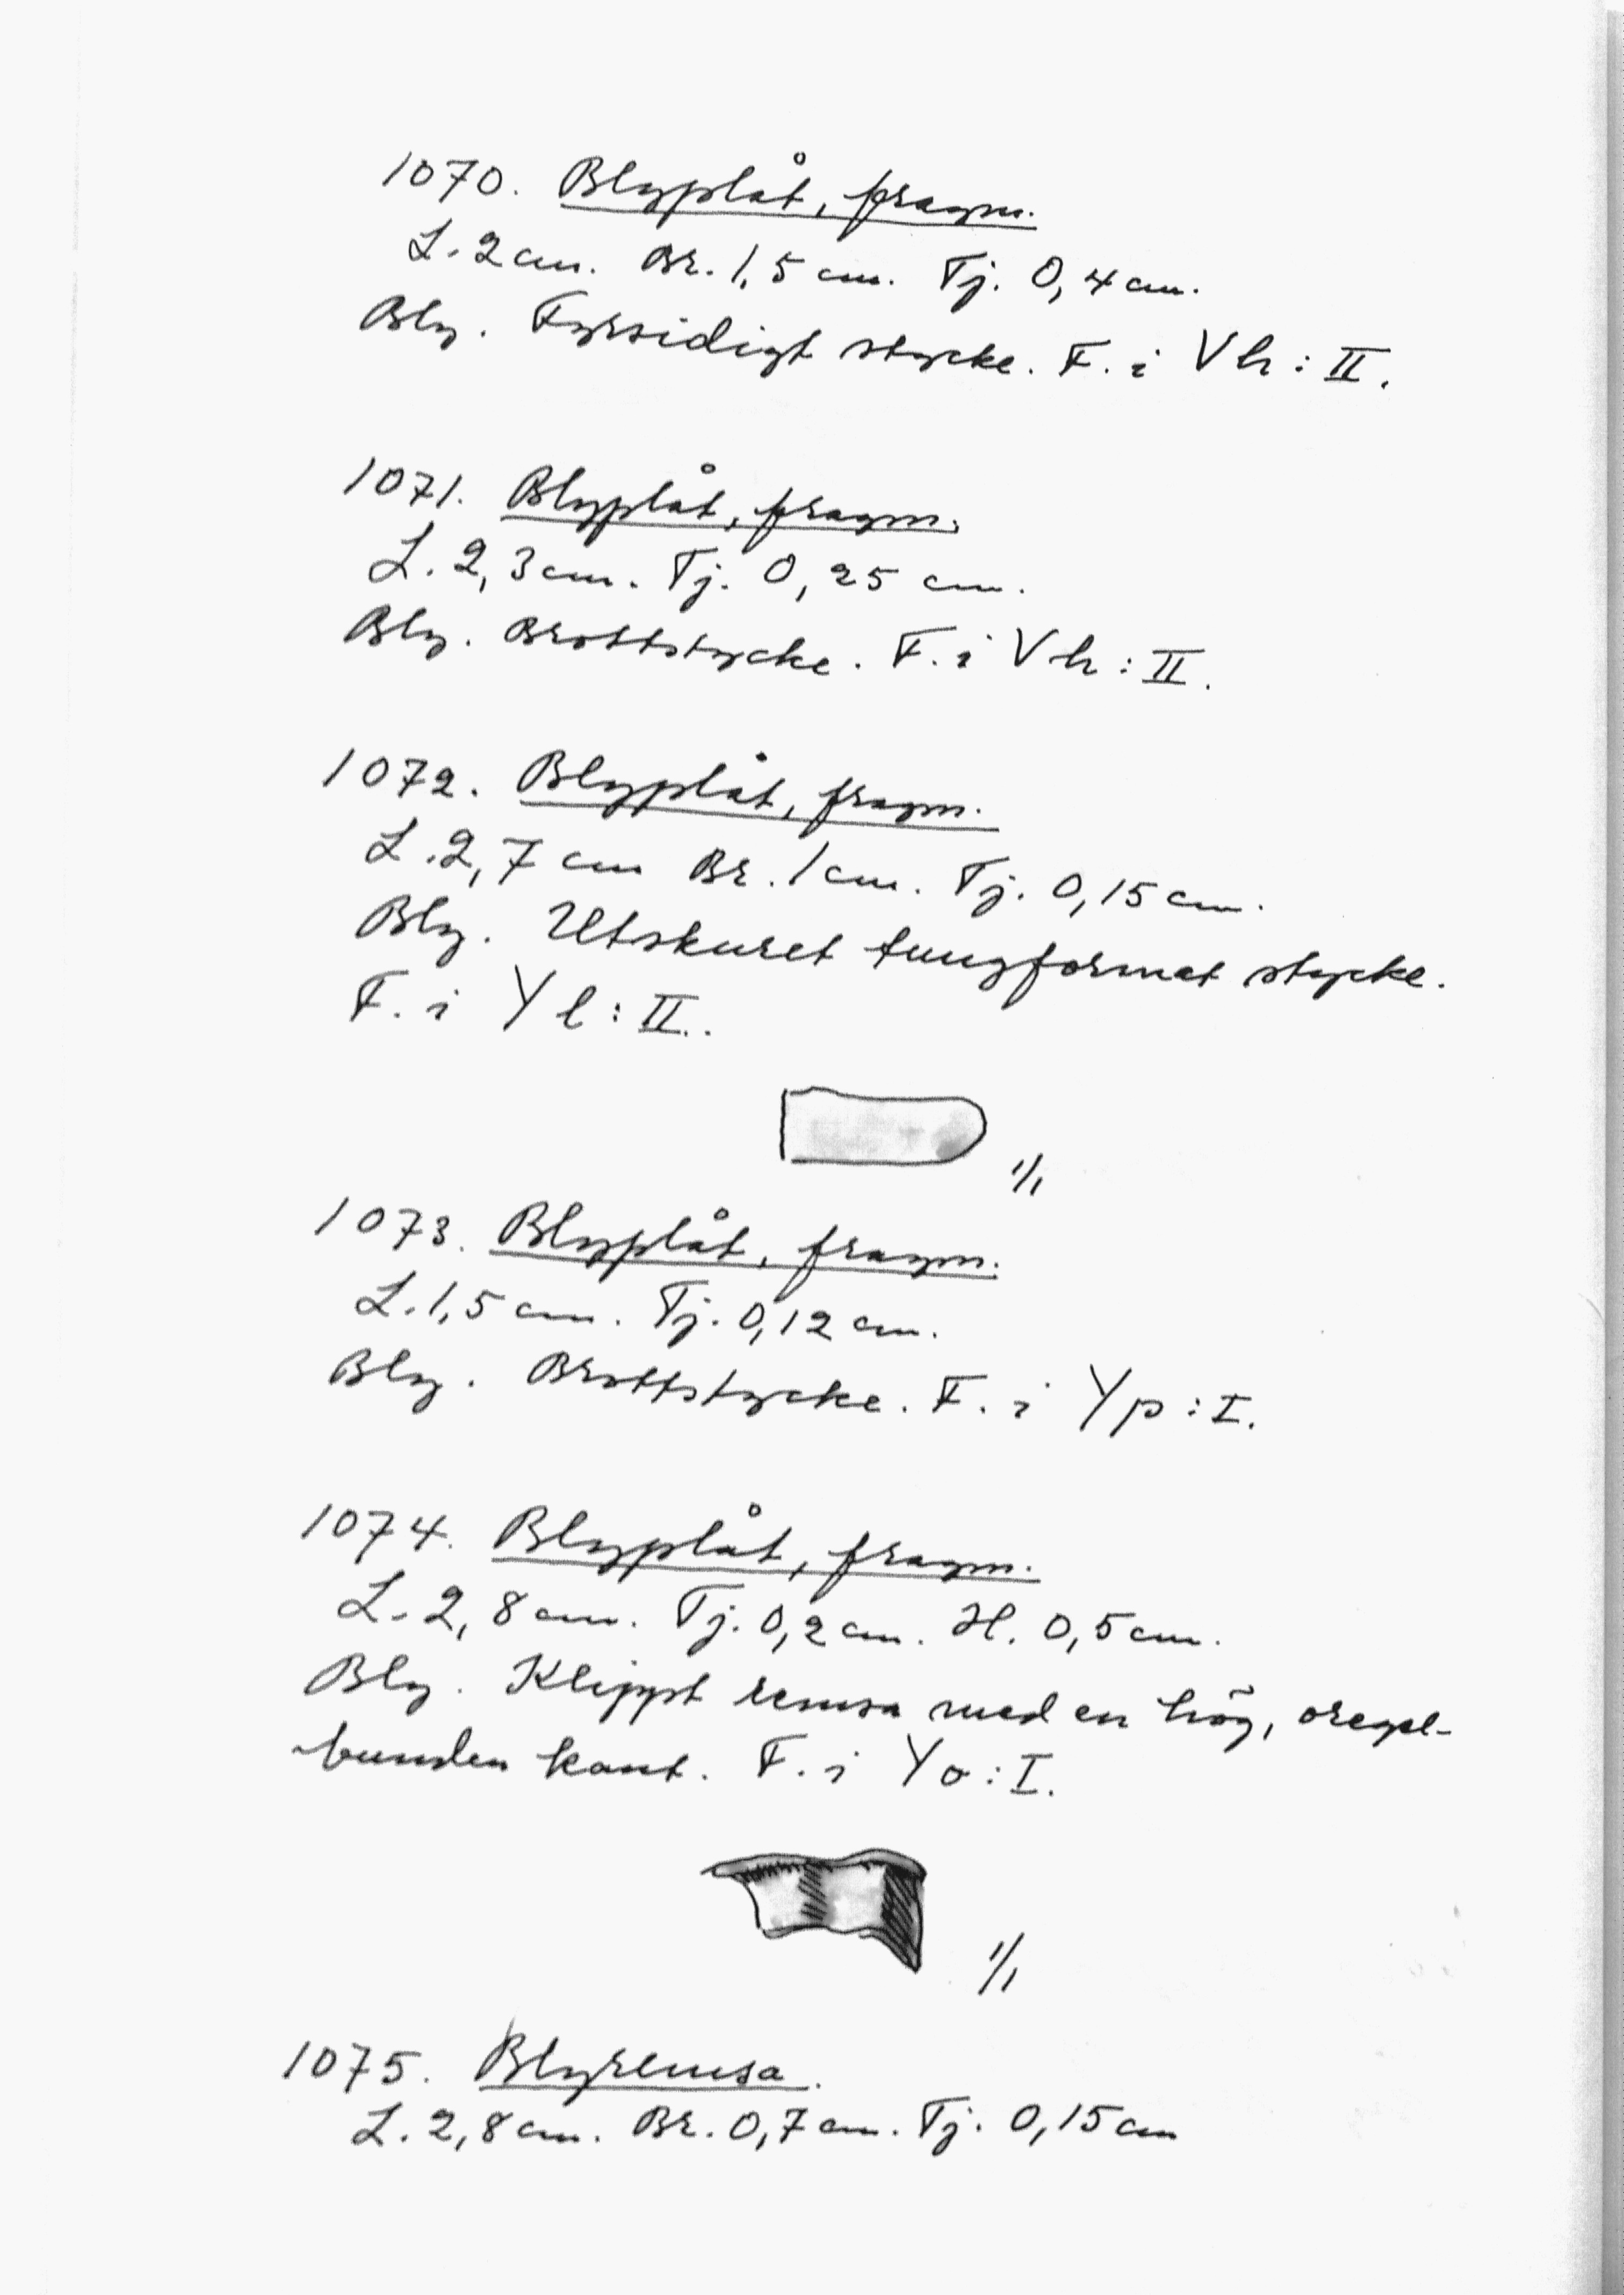 1070. Blyplåt, fragm.
L. 2 cm. Br. 1,5 cm. Tj. 0,4 cm.
Bly. Fyrsidigt stycke. F. i Vh : II.
1071. Blyplåt, fragm.
L. 2,3 cm. Tj. 0,25 cm.
Bly. Brottstycke. F. i Vh : II.
1072. Blyplåt, fragm.
L. 2,7 cm Br. 1 cm. Tj. 0,15 cm.
Bly. Utskuret tungformat stycke.
F. i Yl : II.
1/1
1073. Blyplåt, fragm.
L. 1,5 cm. Tj. 0,12 cm.
Bly. Brottstycke. F. i Yp : I.
1074. Blyplåt, fragm.
L. 2,8 cm. Tj. 0,2 cm. H. 0,5 cm.
Bly. Klippt remsa med en hög, oregel-
bunden kant. F. i Yo : I.
1/1
1075. Blyremsa.
L. 2,8 cm. Br. 0,7 cm. Tj. 0,15 cm